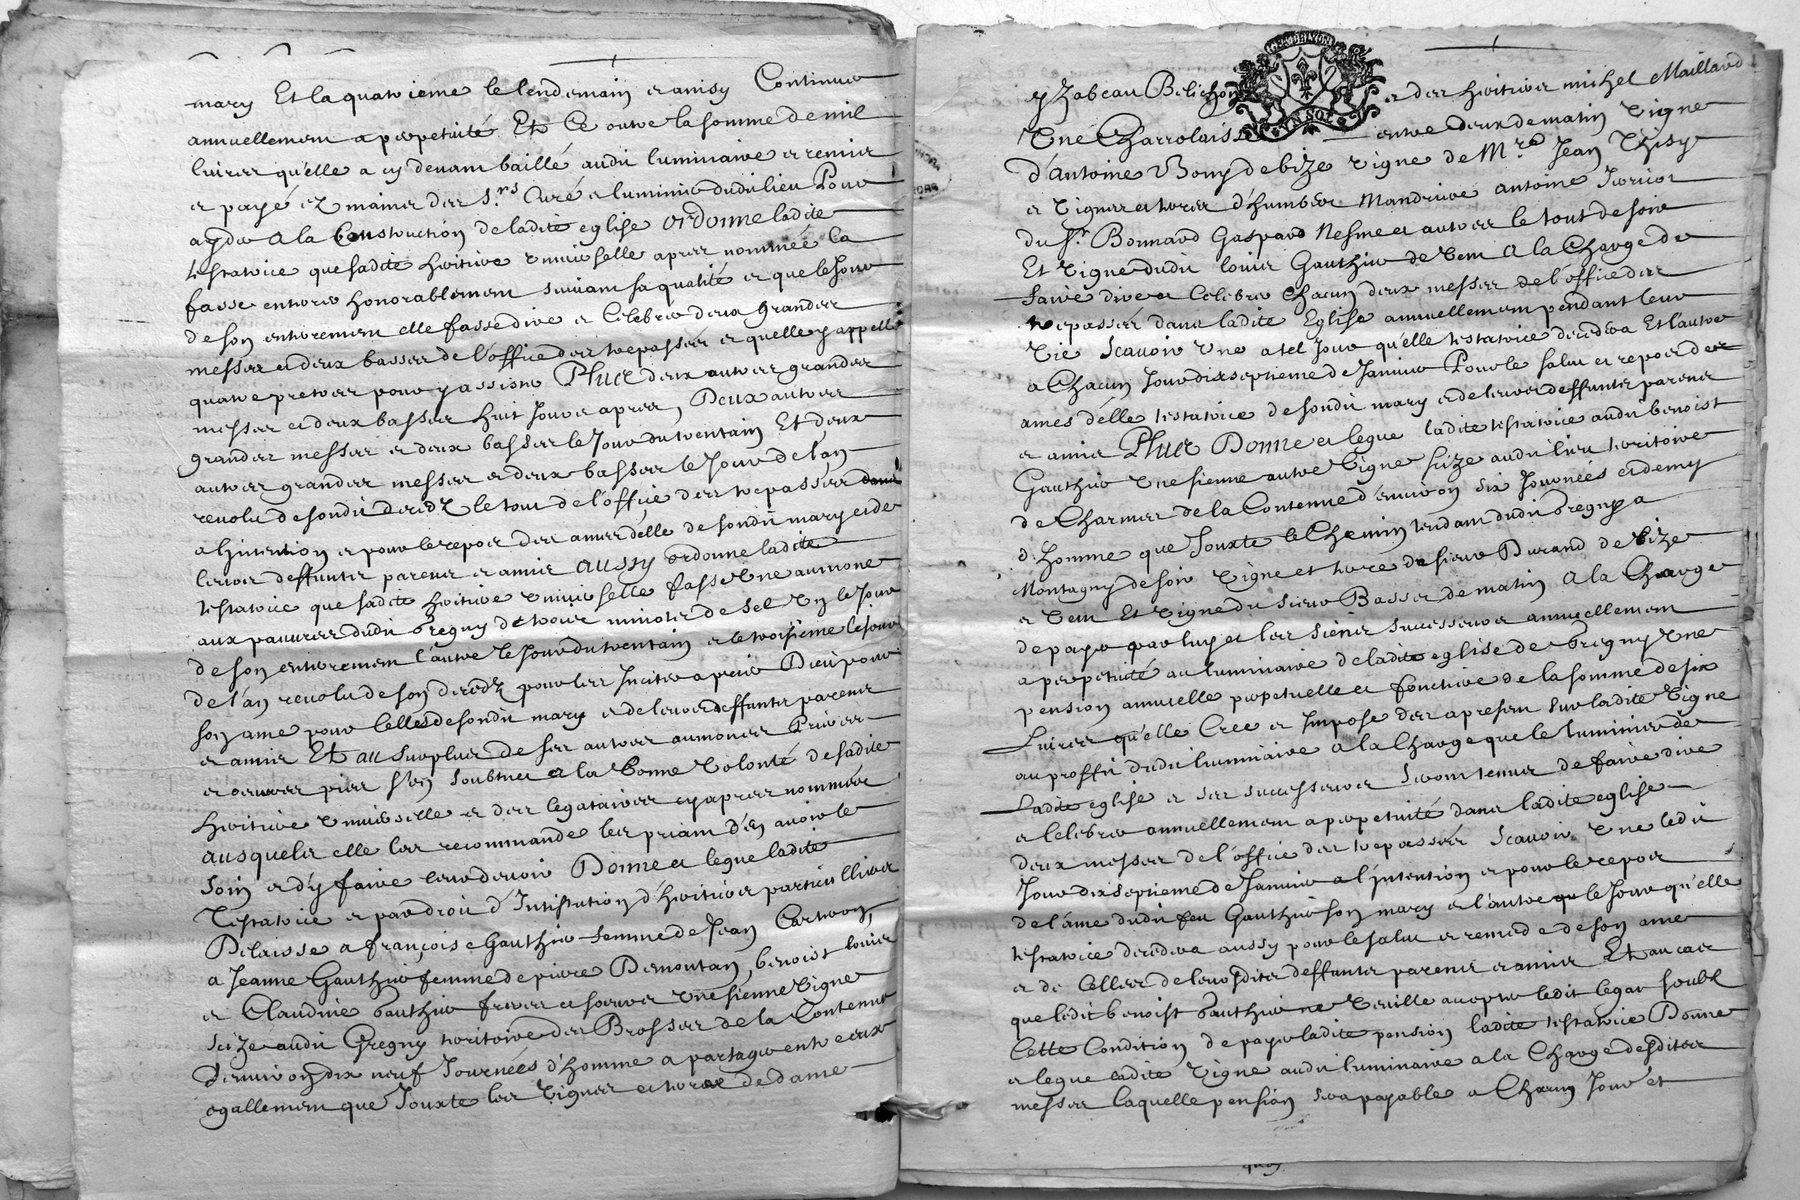 mary Et la quatrieme le lendemain et ainsy Continuer
annuellement a perpetuité Et Ce outre la somme de mil
livres qu'elle a cy devant baillé audit luminaire et remise
et payé ez mains des S.rs Curé et luminier dudit lieu Pour
ayder a la Construction de ladite eglise ordonne ladite
testatrice que sadite heritiere universelle apres nommée la
fasse enterrer honorablement suivant sa qualité et que le Jour
de son enterrement elle fasse dire et Celebrer deux grandes
messes et deux basses de l'office des trepassés et quelle y appelle
quatre pretres pour y assister Plus deux autres grandes
messes et deux basses huit Jours apres, Deux autres
grandes messes et deux basses le Jour du trentain Et deux
autres grandes messes et deux basses le Jour de l'an
revolu de sondit deceds le tout de l'office des trepasses
a l'intention et pour le repos des ames d'elle de sondit mary et de
leurs deffunts parens et amis aussy ordonne ladite
testatrice que sadite heritiere universelle fasse Une aumone
aux pauvres dudit Gregny de trois minots de sel Un le Jour
de son enterrement l'autre le Jour du trentain et le troisieme le Jour
de l'an revolu de son deceds pour les Inciter a prier Dieu pour
son ame pour Celles de sondit mary et de leurs deffunts parens
et amis Et au surplus de ses autres aumones Prieres
et œuvres pies s'en soubmet a la bonne Volonté de sadite
heritiere universelle et des legataires cy apres nommées
ausquels elle les recommande les priant d'en avoir le
soin et d'y faire leur devoir Donne et legue ladite
Testatrice et par droit d'Institution d'heritiers particulliers
Delaisse a françoise Gauthier femme de Jean Cartron,
a Jeanne Gauthier femme de pierre Demoutan, benoist louis
et Claudine Gauthier freres et soeurs Une sienne Vigne
size audit Gregny territoire des Brosses de la Contenue
d'environ dix neuf Journées d'homme a partager entre eux
egallement que Jouxte les Vignes et terre de dame
yzabeau Belichon et des heritiers michel Maillard
Une Charrolaise entre deux de matin Vigne
d'antoine Bony de bize Vigne de M.re Jean Thisy
et Vignes et terres d'humber Mandrive antoine
du S.r Bonnard Gaspard Nesme et autres le tout de soir
Et Vigne dudit louis Gauthier de Vent a la Charge de
faire dire et Celebrer Chacun deux messes de l'office des
trepassés dans ladite Eglise annuellement pendant leur
Vie Scavoir Une a tel Jour qu'elle testatrice decedera Et l'autre
a Chacun Jour dix septieme de Janvier Pour le salut et repos des
ames d'elle testatrice de sondit mary et de leurs deffunts parens
et amis Plus Donne et legue ladite testatrice audit benoist
Gauthier Une sienne autre Vigne size audit lieu territoire
de Charmes de la Contenue d'environ six Journées et demy
d'homme que Jouxte le Chemin tendant dudit Gregny a
Montagny de soir Vigne et terre de sieur Durand de bize
et Vent Et Vigne du sieur Basset de matin a la Charge
de payer par luy et les siens successeurs annuellement
a perpetuité au luminaire de ladite eglise de Gregny Une
pension annuelle perpetuelle et fonciere de la somme de six
Livres qu'elle Crée et Impose des a present sur ladite Vigne
au proffit dudit luminaire a la Charge que le luminier de
Ladite eglise et ses successeurs seront tenus de faire dire
et Celebrer annuellement a perpetuité dans ladite eglise
deux messes de l'office des trepassés Scavoir Une ledit
Jour dix septieme de Janvier a l'intention et pour le repos
de l'âme dudit feu Gauthier son mary et l'autre le Jour qu'elle
testatrice decedera aussy pour le salut et remede de son ame
et de Celles de leursdites deffunts parens et amis Et au cas
que ledit benoist Gauthier ne Veuille accepter ledit legat soubz
Cette Condition de payer ladite pension ladite testatrice Donne
et legue ladite Vigne audit luminaire a la Charge desdites
messes laquelle pension sera payable a Chacun Jour et